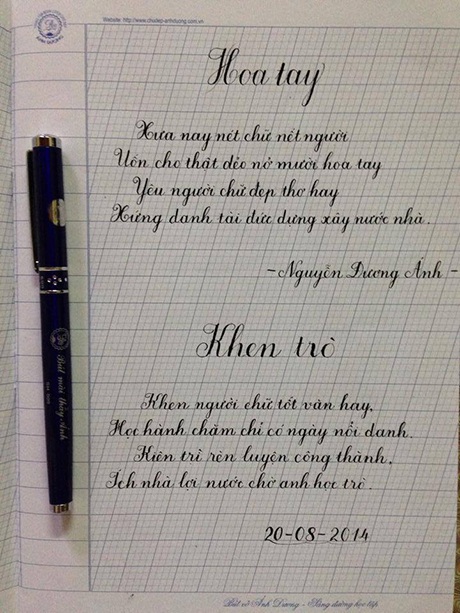 Website: http://www.chudep-anhduong.com.vn
Hoa tay
Xưa nay nét chữ nết người
Uốn cho thật dẻo nở mười hoa tay
Yêu người chữ đẹp thơ hay
Xứng danh tài đức dựng xây nước nhà.
- Nguyễn Dương Ánh -
Khen trò
Khen người chữ tốt văn hay,
Học hành chăm chỉ có ngày nổi danh.
Kiên trì rèn luyện công thành,
Ích nhà lợi nước chờ anh học trò.
20-08-2014
Bút mài thầy Ánh
Bút vở Ánh Dương - Sáng đường học tập